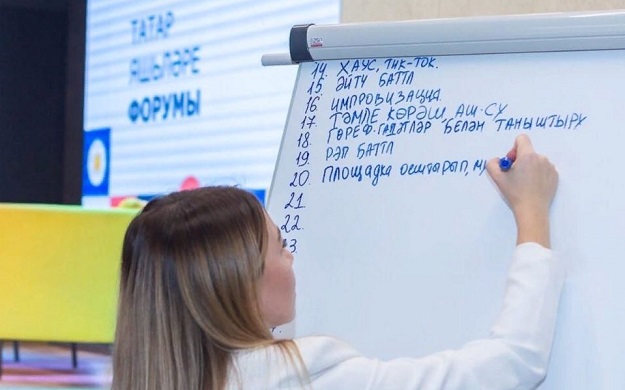 ТАТАР
ЯШЬЛӘРЕ
ФОРУМЫ
14. ХАУС, ТИК-ТОК.
15. ӘЙТҮ БАТТЛ
16. ИМПРОВИЗАЦИЯ
17. ТӘМЛЕ КӨРӘШ, АШ-СУ
18. ГОРЕФ-ГАДӘТЛӘР БЕЛӘН ТАНЫШТЫРУ
19. РӘП БАТТЛ
20. ПЛОЩАДКА ОЕШТЫРЫП,
21.
22.